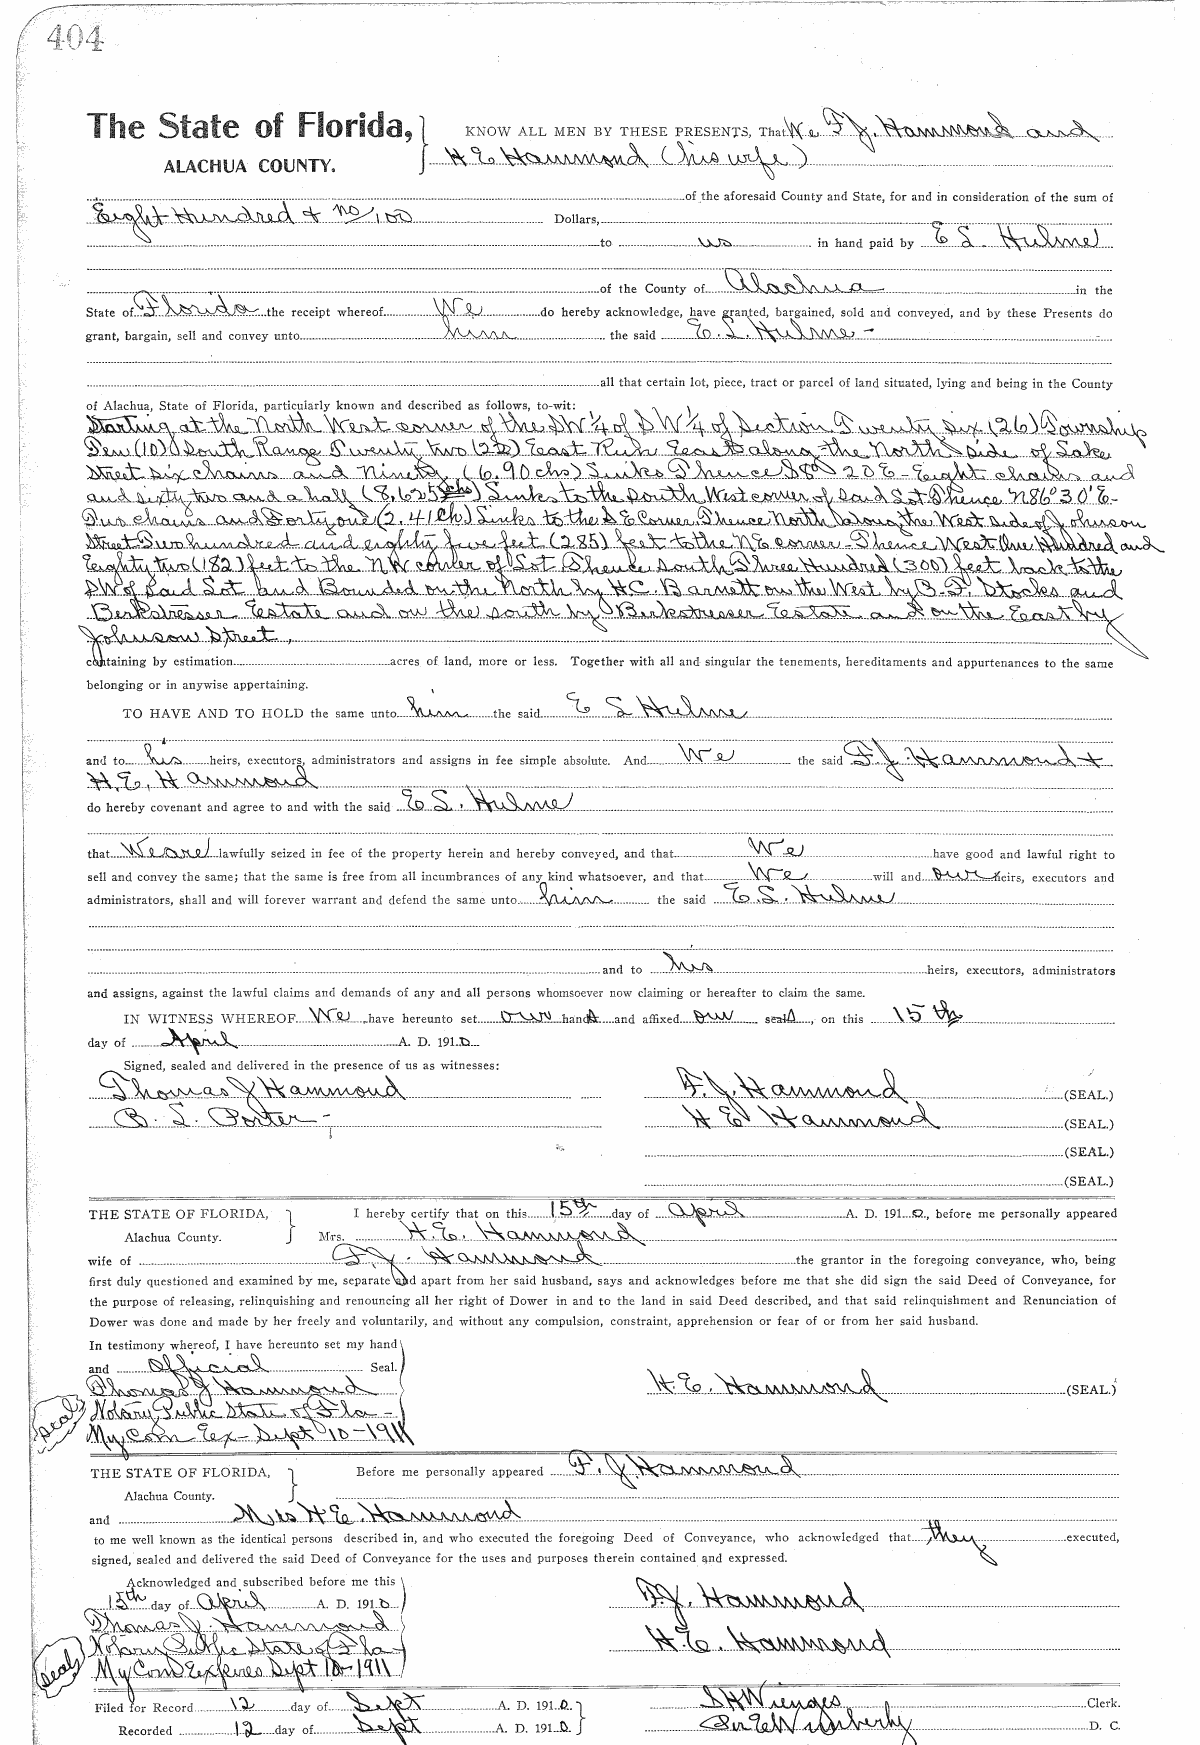 404
The State of Florida,
ALACHUA COUNTY.
KNOW ALL MEN BY THESE PRESENTS, That We F. J. Hammond and
H E Hammond (his wife)
of the aforesaid County and State, for and in consideration of the sum of
Eight Hundred + no/100 Dollars,
to us in hand paid by E S. Hulme
of the County of Alachua in the
State of Florida the receipt whereof We do hereby acknowledge, have granted, bargained, sold and conveyed, and by these Presents do
grant, bargain, sell and convey unto him the said E. S. Hulme -
all that certain lot, piece, tract or parcel of land situated, lying and being in the County
of Alachua, State of Florida, particularly known and described as follows, to-wit:
Starting at the North West corner of the SW 1/4 of SW 1/4 of Section Twenty six (26) Township
Ten (10) South Range Twenty two (22) East Run East along the North side of Lake
Street six chains and Ninety (6.90 chs) Links Thence S 8° 20 E - Eight chains and
and sixty two and a half (8,625 chs) Links to the South West corner of said Lot Thence N 86° 30' E -
Two chains and Forty one (2.41 Ch) Links to the S E Corner. Thence North along the West side of Johnson
Street Two hundred and eighty five feet (285) feet to the NE corner - Thence West One Hundred and
Eighty two (182) feet to the NW corner of Lot Thence South Three Hundred (300) feet back to the
SW of Said Lot and Bounded on the North by H.C. Barnett on the West by B. F. Stocks and
Berkstresser Estate and on the south by Berkstresser Estate and on the East by
Johnson Street,
containing by estimation acres of land, more or less. Together with all and singular the tenements, hereditaments and appurtenances to the same
belonging or in anywise appertaining.
TO HAVE AND TO HOLD the same unto him the said E S Hulme
and to his heirs, executors, administrators and assigns in fee simple absolute. And We the said F. J. Hammond +
H. E. Hammond
do hereby covenant and agree to and with the said E S. Hulme
that We are lawfully seized in fee of the property herein and hereby conveyed, and that We have good and lawful right to
sell and convey the same; that the same is free from all incumbrances of any kind whatsoever, and that We will and our heirs, executors and
administrators, shall and will forever warrant and defend the same unto him the said E. S. Hulme
and to his heirs, executors, administrators
and assigns, against the lawful claims and demands of any and all persons whomsoever now claiming or hereafter to claim the same.
IN WITNESS WHEREOF We have hereunto set our hands and affixed our seals, on this 15th
day of April A. D. 1910
Signed, sealed and delivered in the presence of us as witnesses:
Thomas J Hammond F. J. Hammond (SEAL.)
B. L. Porter - H E Hammond (SEAL.)
(SEAL.)
(SEAL.)
THE STATE OF FLORIDA, I hereby certify that on this 15th day of April A. D. 1910, before me personally appeared
Alachua County. Mrs. H. E. Hammond
wife of F. J. Hammond the grantor in the foregoing conveyance, who, being
first duly questioned and examined by me, separate and apart from her said husband, says and acknowledges before me that she did sign the said Deed of Conveyance, for
the purpose of releasing, relinquishing and renouncing all her right of Dower in and to the land in said Deed described, and that said relinquishment and Renunciation of
Dower was done and made by her freely and voluntarily, and without any compulsion, constraint, apprehension or fear of or from her said husband.
In testimony whereof, I have hereunto set my hand
and Official Seal.
Thomas J Hammond H. E. Hammond (SEAL.)
Seals Notary Public State of Fla -
My Com Ex - Sept 10 - 1911
THE STATE OF FLORIDA, Before me personally appeared F. J. Hammond
Alachua County.
and Mrs H E. Hammond
to me well known as the identical persons described in, and who executed the foregoing Deed of Conveyance, who acknowledged that they executed,
signed, sealed and delivered the said Deed of Conveyance for the uses and purposes therein contained and expressed.
Acknowledged and subscribed before me this
15th day of April A. D. 1910 F. J. Hammond
Thomas J. Hammond
Notary Public State of Fla - H. E. Hammond
Seals My Com Expires Sept 10 - 1911
Filed for Record 12 day of Sept A. D. 1910. S H Wienges Clerk.
Recorded 12 day of Sept A. D. 1910. Per E W Wimberly D. C.